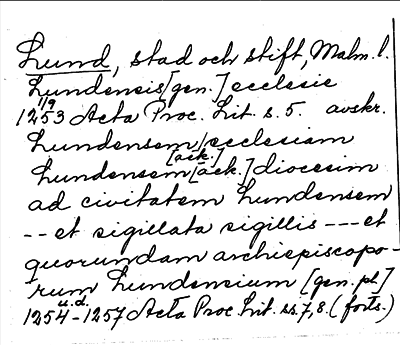 Lund, stad och stift, Malm. l.
Lundensis [gen.] ecclesie
1/9
1253 Acta Proc. Lit. s. 5. avskr.
Lundensem / ecclesiam
[ack.]
Lundensem [ack.] diocesim
ad civitatem Lundensem
-- et sigillata sigillis --- et
quorundam archiepiscopo-
rum Lundensium [gen. pl.]
u.d.
1254-1257 Acta Proc. Lit. ss. 7, 8. (forts.)